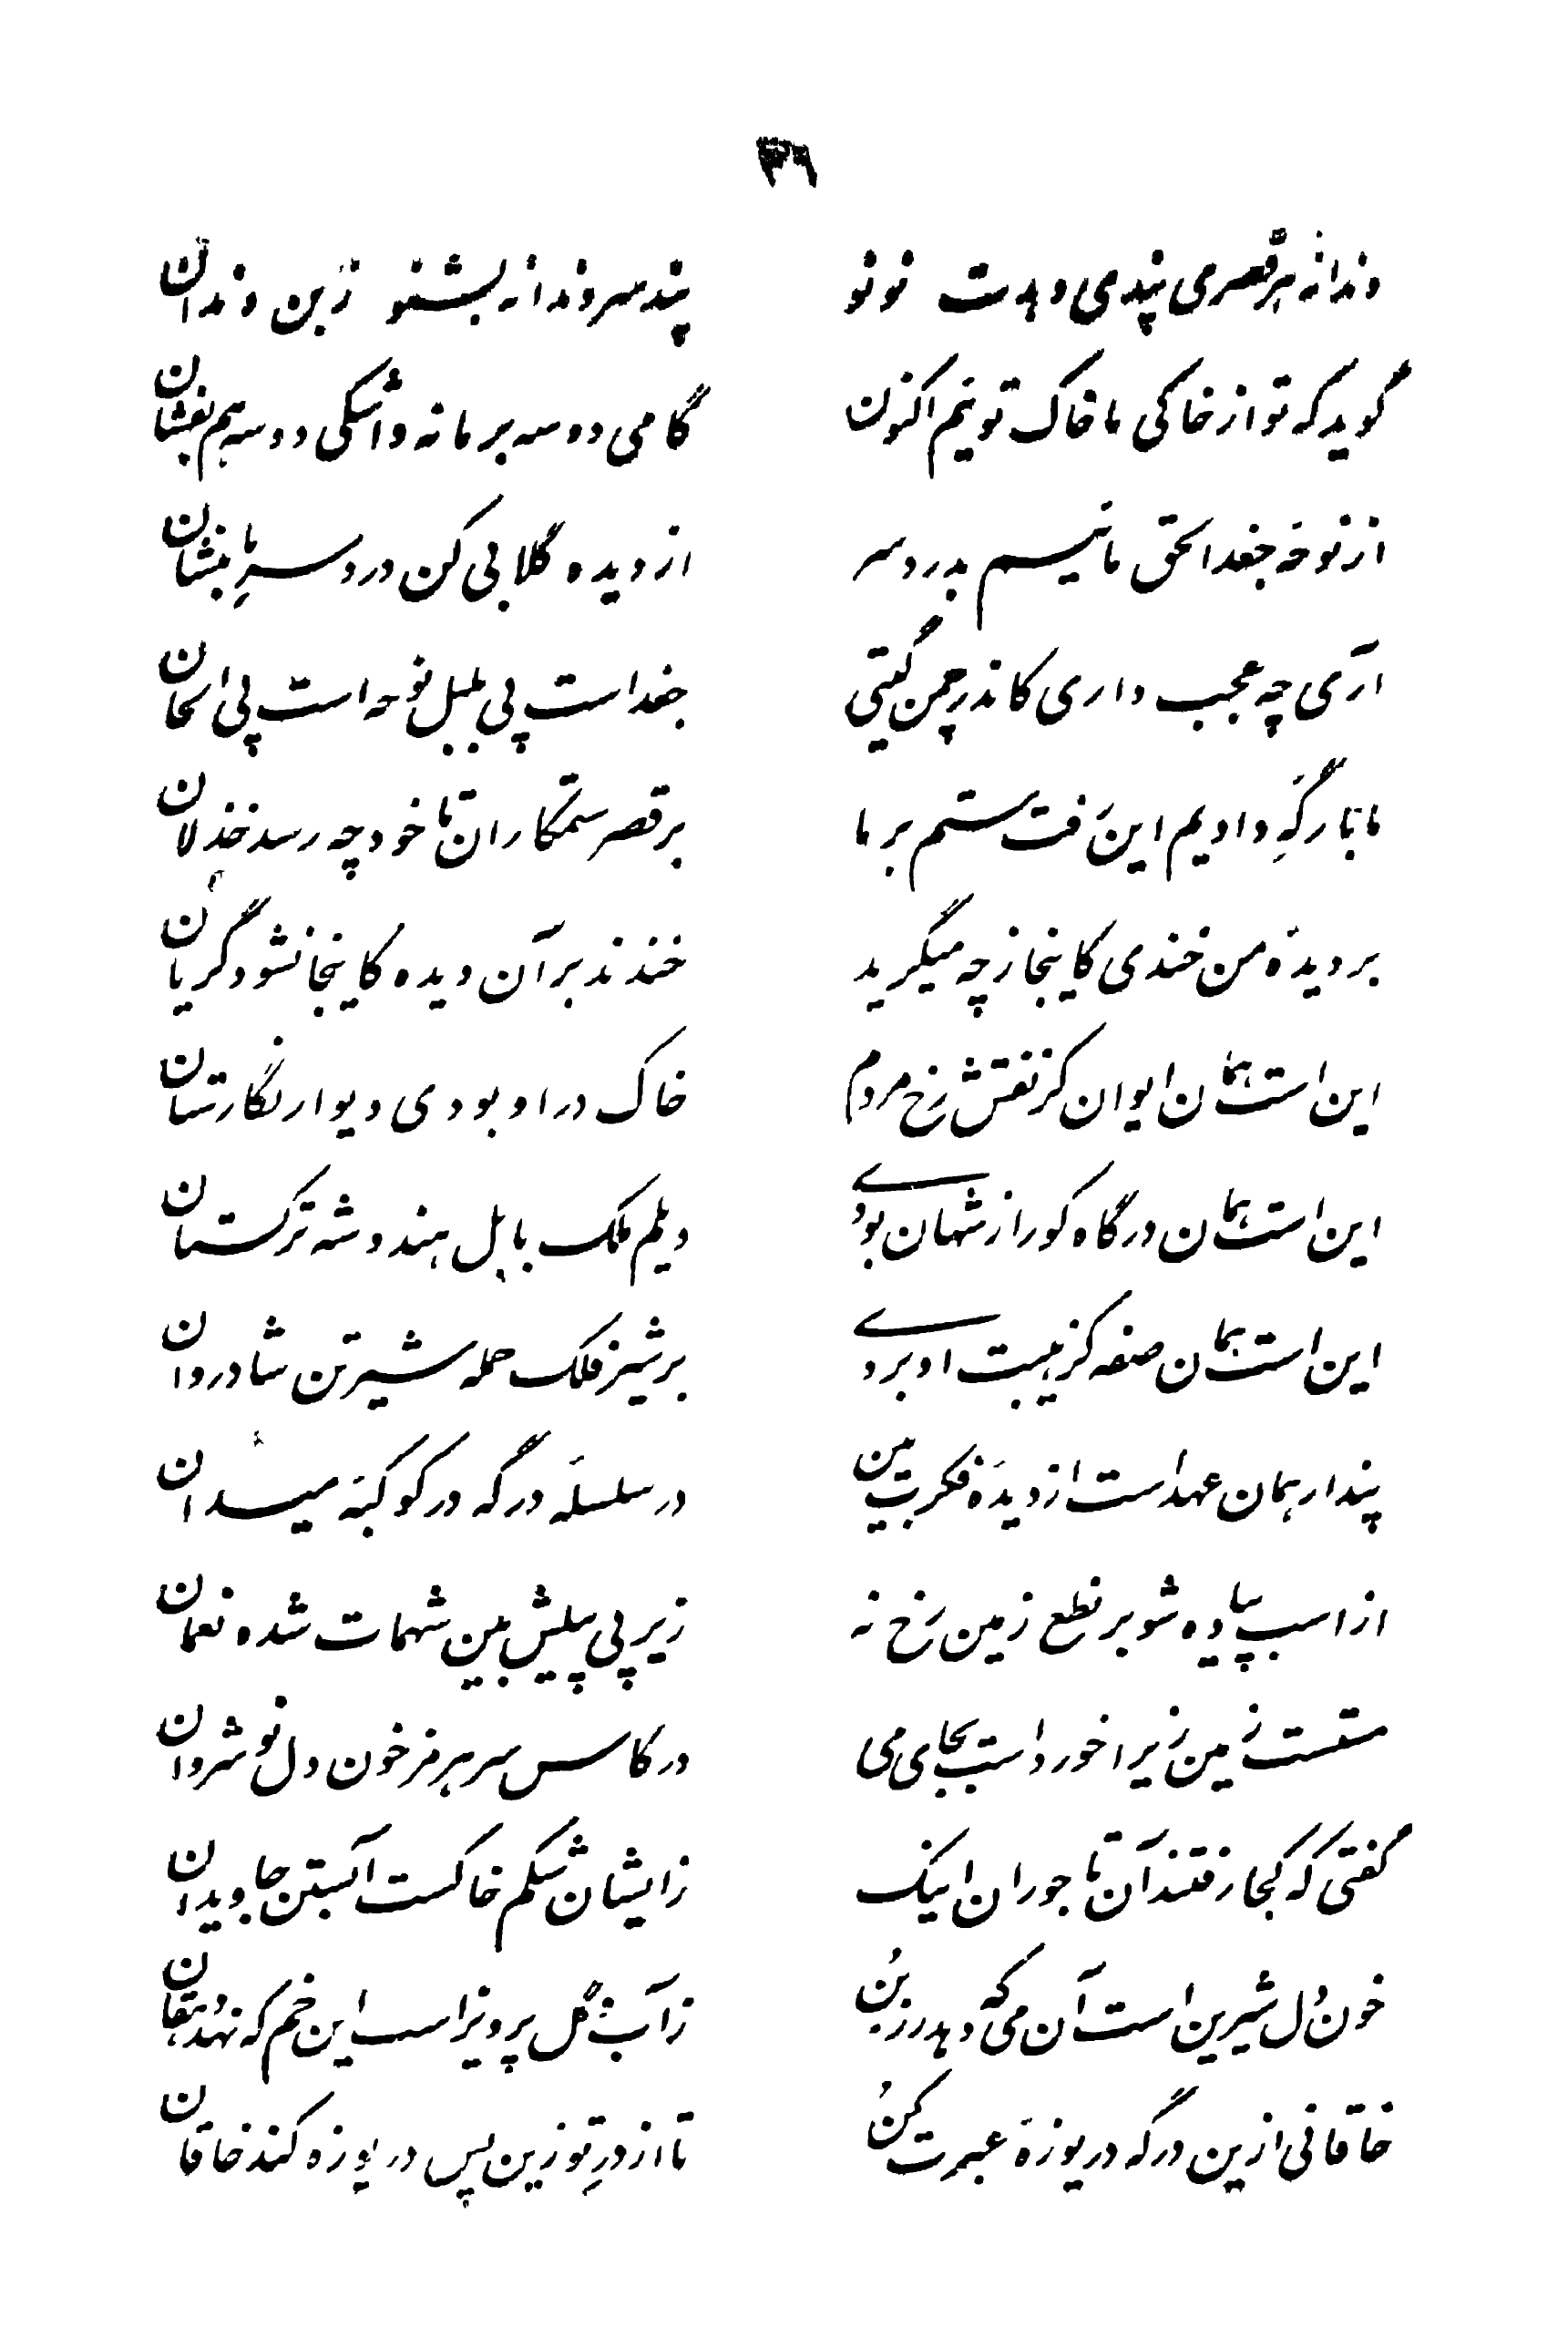 ۳۹
دندانه هر قصری پندی دهدت نو نو	پند سر دندانه بشنو ز بن دندان
گوید که تو از خاکی ما خاک توئیم اکنون	گامی دو سه بر ما نه و اشکی دو سه هم بفشان
از نوحه جغد الحق مائیم بدرد سر	از دیده گلابی کن درد سرِ ما بنشان
آری چه عجب داری کاندر چمن گیتی	جغد است پی بلبل نوحه است پی الحان
ما بارگهِ دادیم این رَفت ستم بر ما	بر قصر ستمکاران تا خود چه رسد خذلان
بر دیدهٔ من خندی کاینجا ز چه میگرید	خندند بر آن دیده کاینجا نشود گریان
این است همان ایوان کز نقش رُخ مردم	خاک در او بودی دیوار نگارستان
این است همان درگاه کورا ز شهان بودے	دیلم ملک بابل هندو شه ترکستان
این است همان صفه کز هیبت او بردے	بر شیر فلک حمله شیر تن شادروان
پندار همان عهد است از دیدهٔ فکرت بین	در سلسلهٔ درگه در کوکبهٔ میدان
از اسب پیاده شو بر نطع زمین رُخ نه	زیر پی پیلش بین شهمات شده نعمان
مستست زمین زیرا خورد است بجای می	در کاس سر هرمز خون دل نوشروان
گفتی که کجا رفتند آن تاجوران اینک	زایشان شکم خاکست آبستن جاویدان
خون دُل شیرین است آن می که دهد رزبُن	ز آب و گل پرویز است این خم که نهد دهقان
خاقانی ازین درگه دریوزهٔ عبرت کُن	تا از درِ تو زین پس دریوزه کند خاقان